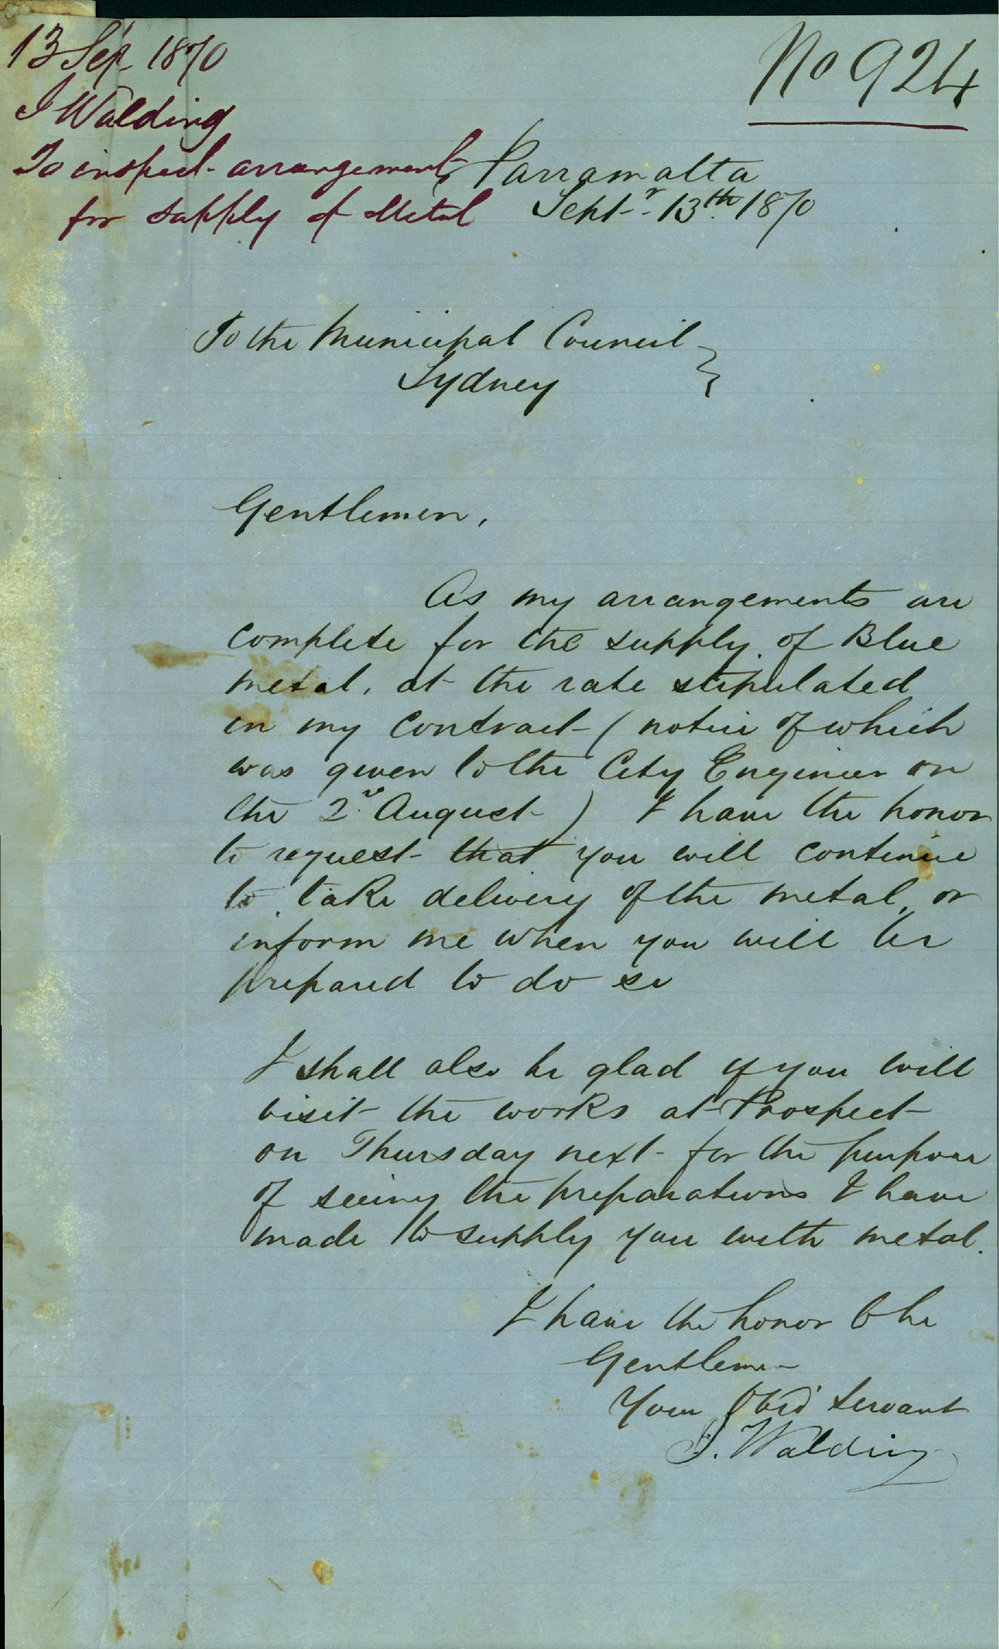 13 Sep 1870
J Walding
To inspect arrangements
for supply of Metal
No 924
Parramatta
Septr. 13th 1870
To the Municipal Council
Sydney
Gentlemen,
As my arrangements are
complete for the supply of Blue
metal, at the rate stipulated
in my contract (notice of which
was given to the City Engineer on
the 2d August) I have the honor
to request that you will continue
to take delivery of the metal, or
inform me when you will be
prepared to do so
I shall also be glad if you will
visit the works at Prospect
on Thursday next for the purpose
of seeing the preparations I have
made to supply you with metal.
I have the honor to be
Gentlemen
Your Obed Servant
J. Walding